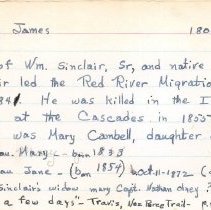 James 180
of Wm. Sinclair, Sr, and native
ir led the Red River Migration
84 He was killed in the I
at the Cascades in 1855
was Mary Canbell, daughter
Mary c - ban 1853
Jane - (ban 1854) Oct-11-1872
Sinclair's widow mary Capt. Nathan Olney
a few days" - Travis, Nez Perce Trail - p.